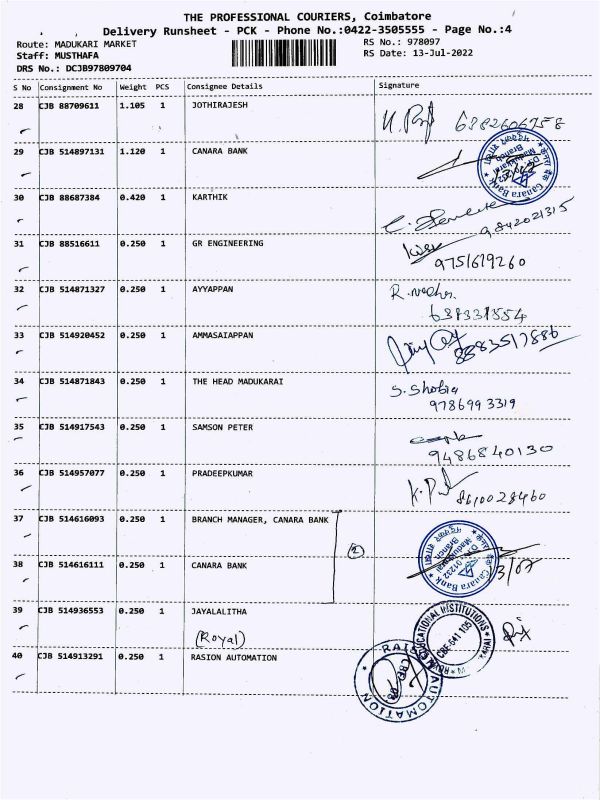 THE PROFESSIONAL COURIERS, Coimbatore
Delivery Runsheet - PCK - Phone No.:0422-3505555 - Page No.:4
Route: MADUKARI MARKET RS No.: 978097
Staff: MUSTHAFA RS Date: 13-Jul-2022
DRS No.: DCJB97809704
S No Consignment No Weight PCS Consignee Details Signature
28 CJB 88709611 1.105 1 JOTHIRAJESH
6382606758
29 CJB 514897131 1.120 1 CANARA BANK
Canara Bank
30 CJB 88687384 0.420 1 KARTHIK
9842021315
31 CJB 88516611 0.250 1 GR ENGINEERING
9751619260
32 CJB 514871327 0.250 1 AYYAPPAN
33 CJB 514920452 0.250 1 AMMASAIAPPAN
8883517886
34 CJB 514871843 0.250 1 THE HEAD MADUKARAI
S. Shobia
9786993319
35 CJB 514917543 0.250 1 SAMSON PETER
9486840130
36 CJB 514957077 0.250 1 PRADEEPKUMAR
8610028460
37 CJB 514616093 0.250 1 BRANCH MANAGER, CANARA BANK
(2)
38 CJB 514616111 0.250 1 CANARA BANK
Canara Bank
39 CJB 514936553 0.250 1 JAYALALITHA
(Royal)
EDUCATIONAL INSTITUTIONS
CBE-641 105
40 CJB 514913291 0.250 1 RASION AUTOMATION
AUTOMATION